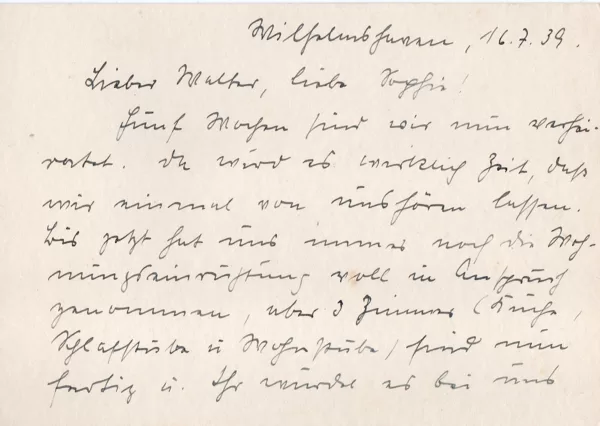 Wilhelmshaven, 16.7.39.
Lieber Walter, liebe Sophie!
Fünf Wochen sind wir nun verhei-
ratet. Da wird es wirklich Zeit, daß
wir einmal von uns hören lassen.
Bis jetzt hat uns immer noch die Woh-
nungseinrichtung voll in Anspruch
genommen, aber 3 Zimmer (Küche,
Schlafstube u Wohnstube) sind nun
fertig u. Ihr würdet es bei uns